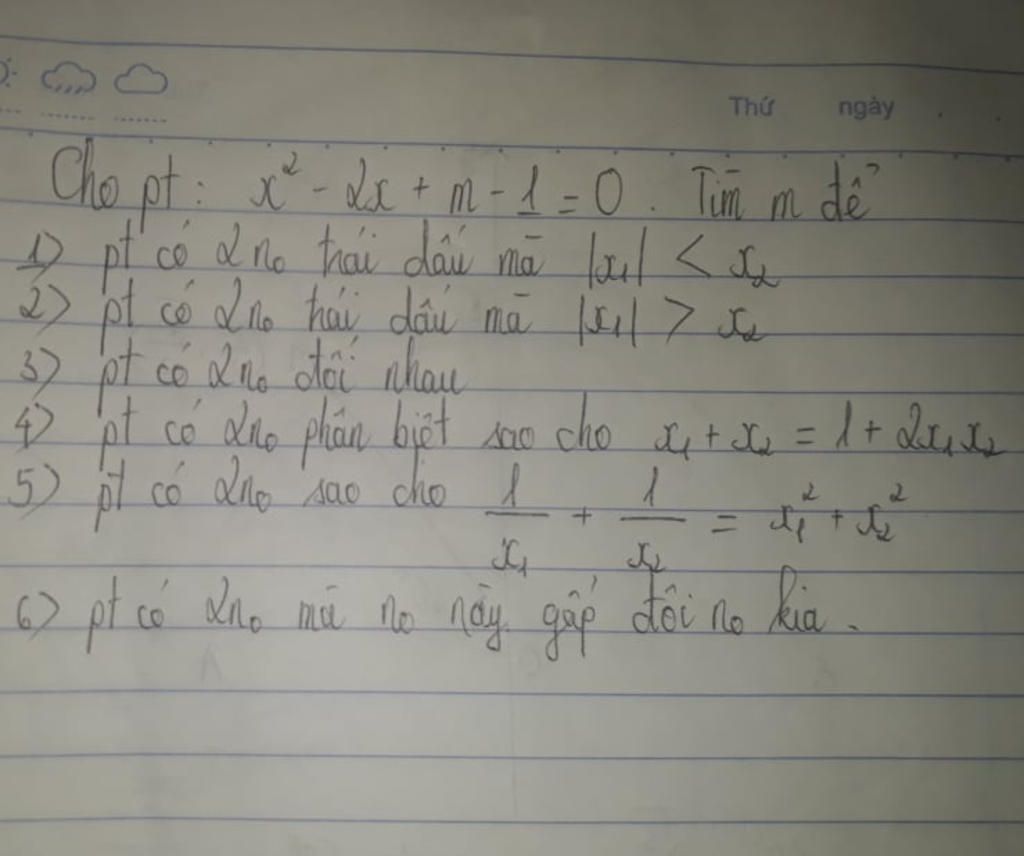 Thứ ngày
Cho pt: x² - 2x + m - 1 = 0. Tìm m để
1) pt có 2 no trái dấu mà |x₁| < x₂
2) pt có 2 no trái dấu mà |x₁| > x₂
3) pt có 2 no đối nhau
4) pt có 2 no phân biệt sao cho x₁ + x₂ = 1 + 2x₁x₂
5) pt có 2 no sao cho 1/x₁ + 1/x₂ = x₁² + x₂²
6) pt có 2 no mà no này gấp đôi no kia.